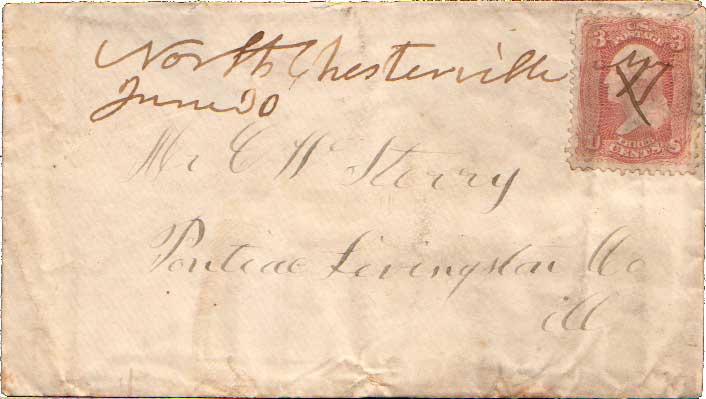 North Chesterville Me
June 20
Mr C W Sterry
Pontiac Livingston Co
ill
3 U.S. 3
POSTAGE
U THREE S
CENTS